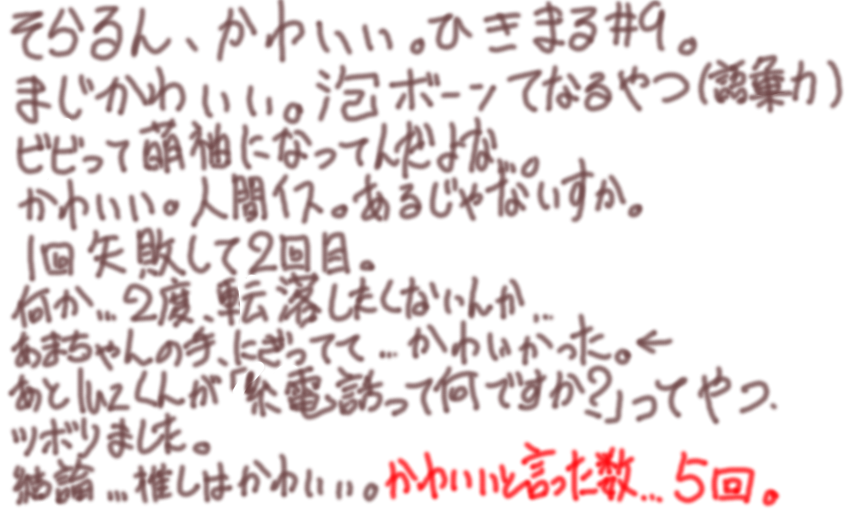 そらるん、かわいい。ひきまる#9。
まじかわいい。泡ボーンてなるやつ(語彙力)
ビビって萌袖になってんだよな…。
かわいい。人間イス。あるじゃないすか。
1回失敗して2回目。
何か…2度、転落したくないんか…
あまちゃんの手、にぎってて…かわいかった。←
あとluzくんが「糸電話って何ですか?」ってやつ、
ツボりました。
結論…推しはかわいい。かわいいと言った数…5回。